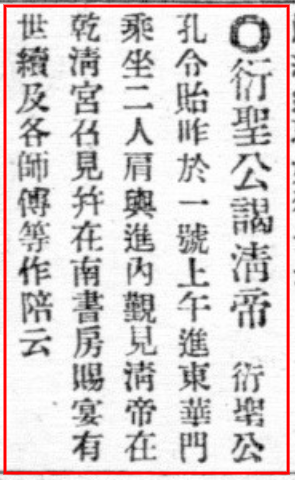 ◎衍聖公謁清帝　衍聖公
孔令貽昨於一號上午進東華門
乘坐二人肩輿進內觀見清帝在
乾淸宮召見幷在南書房賜宴有
世續及各師傅等作陪云